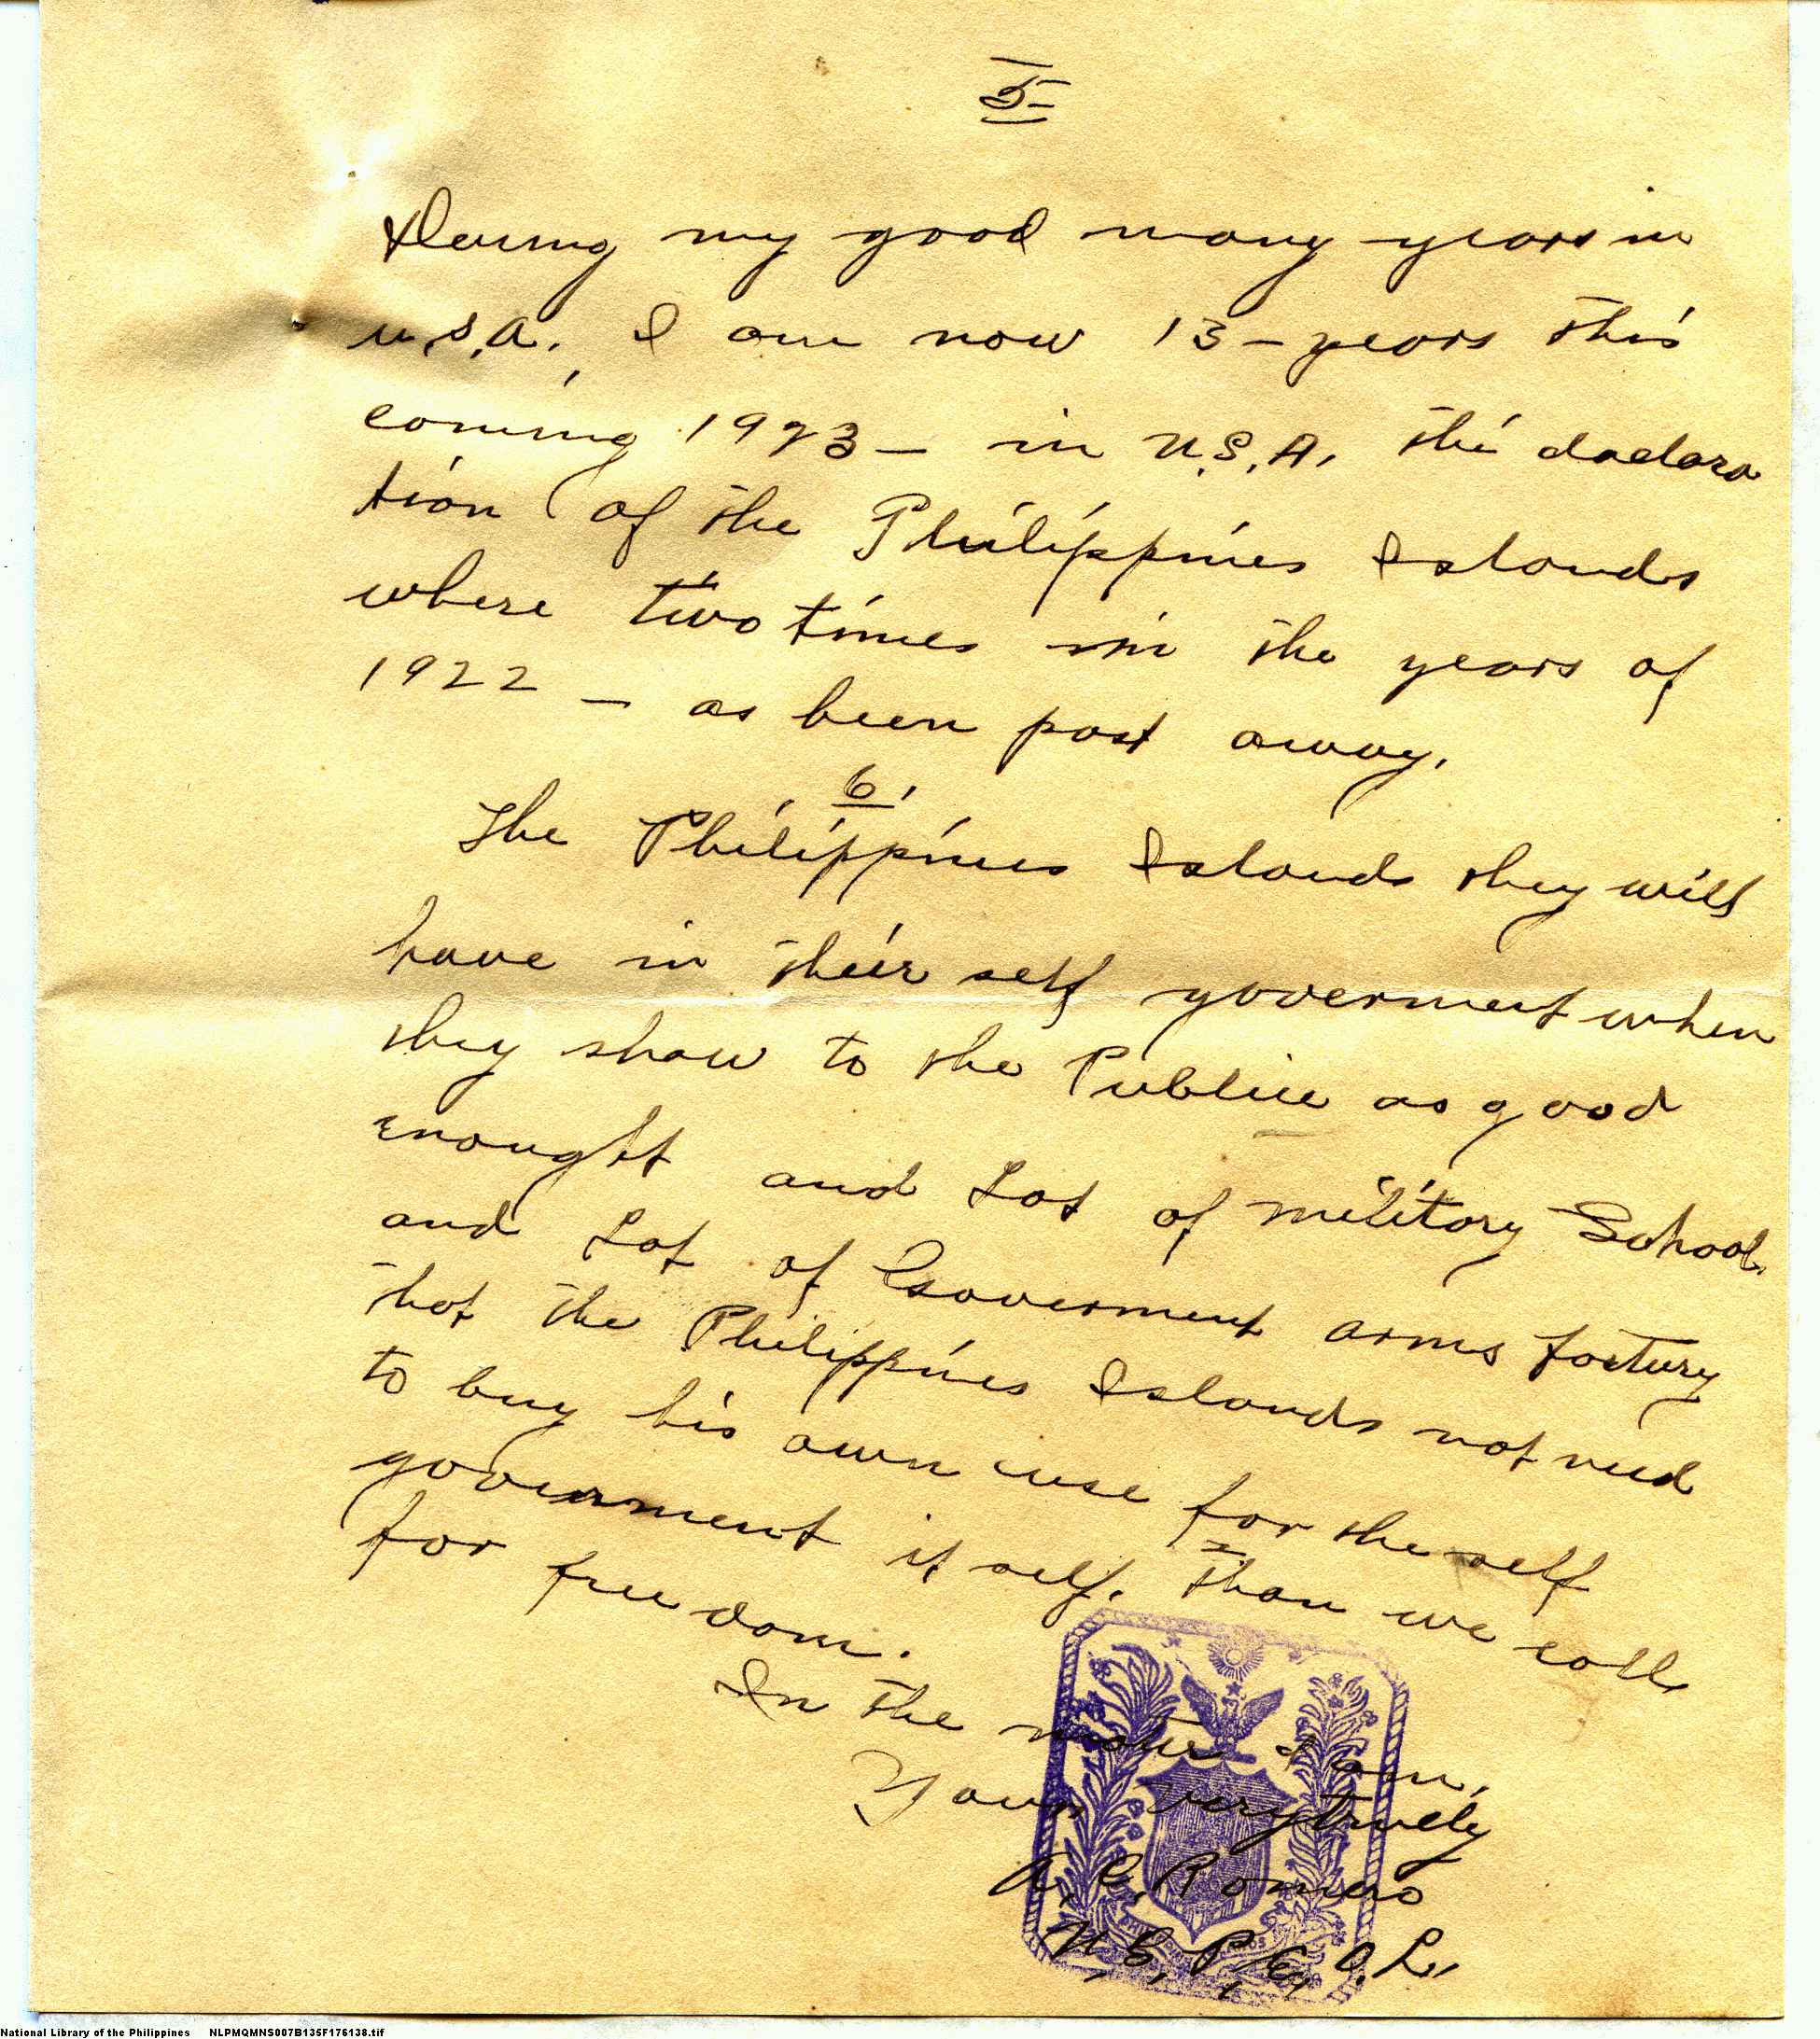 5-
During my good many years in
U.S.A. I am now 13 - years this
coming 1923 - in U.S.A. the daclara
tion of the Philippines Islands
where two times in the years of
1922 - as been past away.
6
The Philippines Islands they will
have in their self goverment when
they show to the Public as good
enought and Lot of military School.
and Lot of Goverment arms factury
that the Philippines Islands not need
to buy his own use for the self
goverment it self. Than we call
for freedom.
In the I am,
Yours very truely
A. C. Romero
P. O. L.
National Library of the Philippines NLPMQMNS007B135F176138.tif